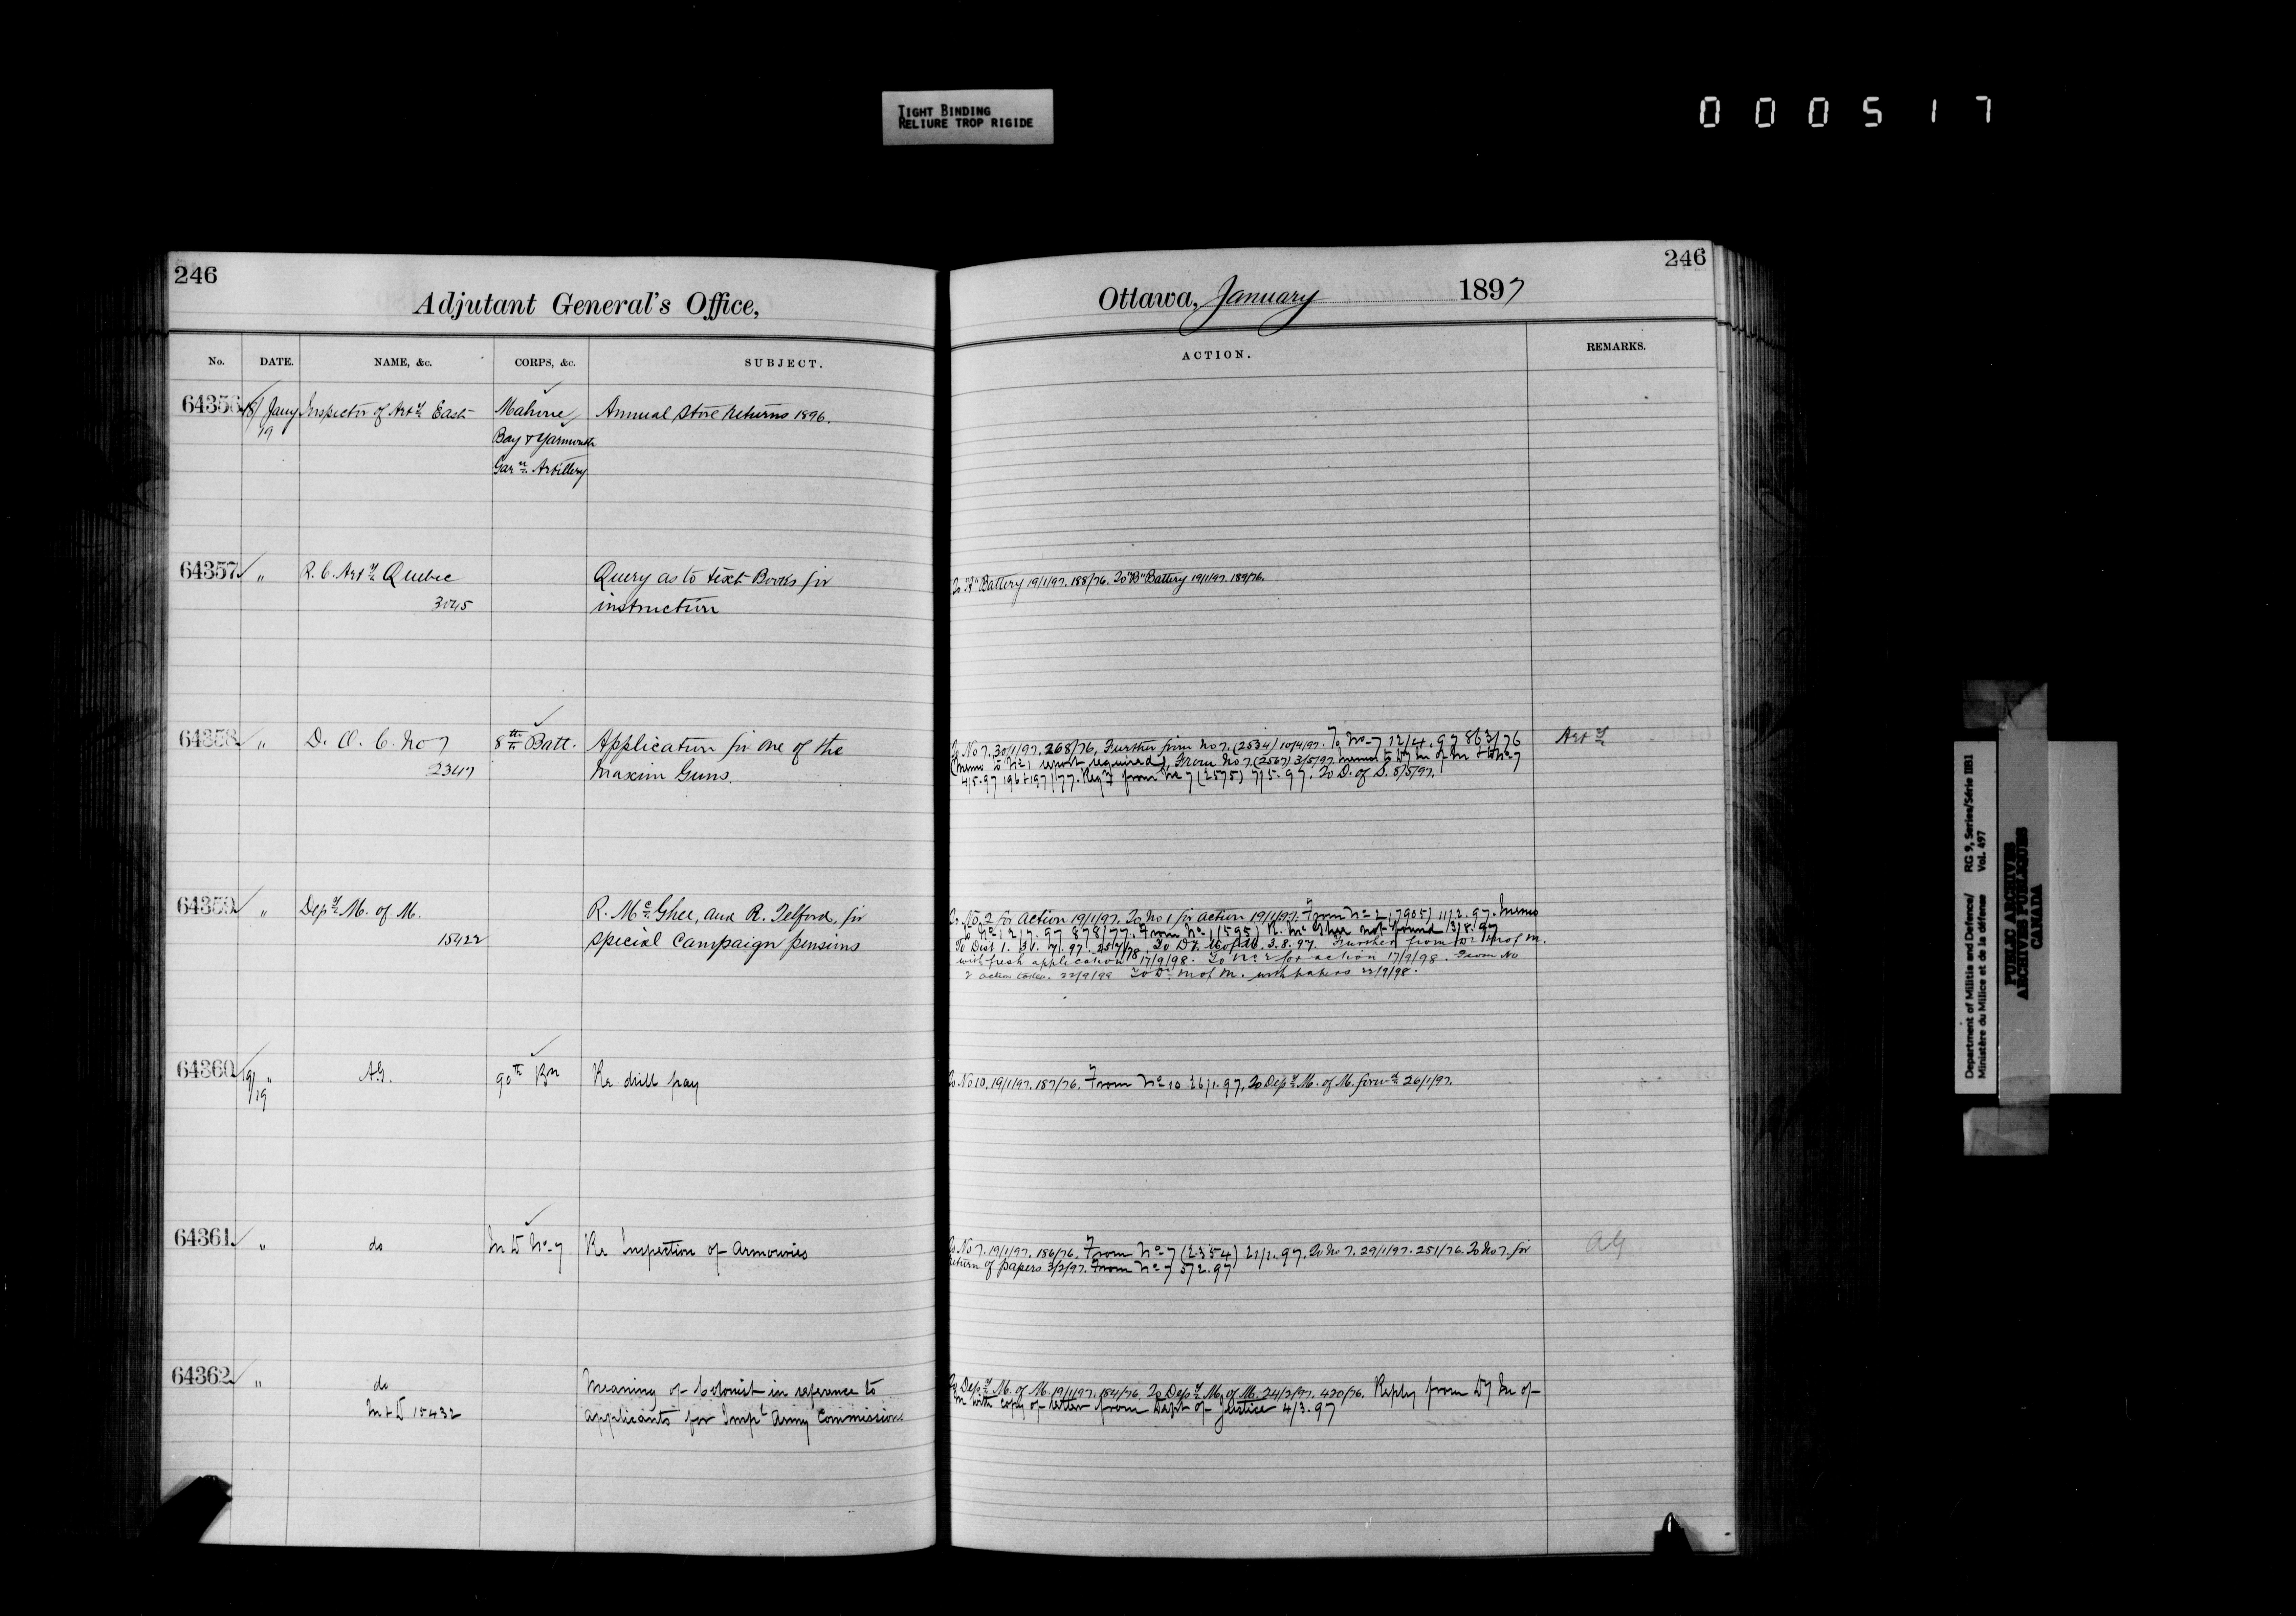 TIGHT BINDING
RELIURE TROP RIGIDE
000517
246
Adjutant General's Office,
No. DATE. NAME, &c. CORPS, &c. SUBJECT.
64356 18/Jany Inspector of Arty East Mahone Annual Store Returns 1896.
19 Bay & Yarmouth
Garn. Artillery
64357 " R. C. Arty Quebec Query as to text Books for
3045 instruction
64358 " D. O. C. No 7 8th Batt. Application for one of the
2347 Maxim Guns.
64359 " Depy M. of M. R. McGhee, and R. Telford, for
15422 special Campaign pensions
64360 19/" A.G. 90th Bn Re drill pay
19
64361 " do M D No 7 Re Inspection of Armouries
64362 " do Meaning of Colonist in reference to
M & D 15432 applicants for Impl Army Commissions
246
Ottawa, January 1897
ACTION. REMARKS.
To "A" Battery 19/1/97. 188/76. To "B" Battery 19/1/97. 189/76.
To No 7. 30/1/97. 268/76. Further from No 7. (2534) 10/4/97. To No 7 12/4.97 863/76 Arty
(Memo to No 1 report required), From No 7 (2567) 3/5/97. memo to Dy M of M & to No 7
4/5.97 196 & 197/77. Reqn from No 7 (2575) 7/5.97. To D. of S. 8/5/97.
To No. 2 for action 19/1/97. To No 1 for action 19/1/97. From No 2 (7905) 11/2.97. Memo
to No 1 2/7.97 878/77. From No 1 (595) R. McGhee not found 13/8.97
To Dist 1. 31.7.97. 257/78. To Dy. M of M. 3.8.97. Further from Dy M of M.
with fresh application 17/9/98. To No 2 for action 17/9/98. From No
2 action taken. 22/9/98 To Dy M of M. with papers 22/9/98.
To No 10. 19/1/97. 187/76. From No 10 26/1.97. To Depy M. of M. forwd 26/1/97.
To No 7. 19/1/97. 186/76. From No 7 (2354) 21/1.97. To No 7. 29/1/97. 251/76. To No 7. for AG
return of papers 3/2/97. From No 7 5/2.97
To Depy M. of M. 19/1/97. 184/76. To Depy M. of M. 24/2/97. 420/76. Reply from Dy M of
M with copy of letter from Dept of Justice 4/3.97
Department of Militia and Defence/ RG 9, Series/Série IIB1
Ministère du Milice et de la défense Vol. 497
PUBLIC ARCHIVES
ARCHIVES PUBLIQUES
CANADA